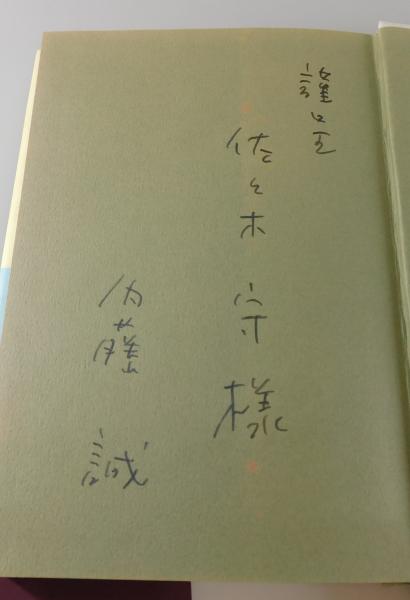 謹呈
佐々木 守様
内藤 誠